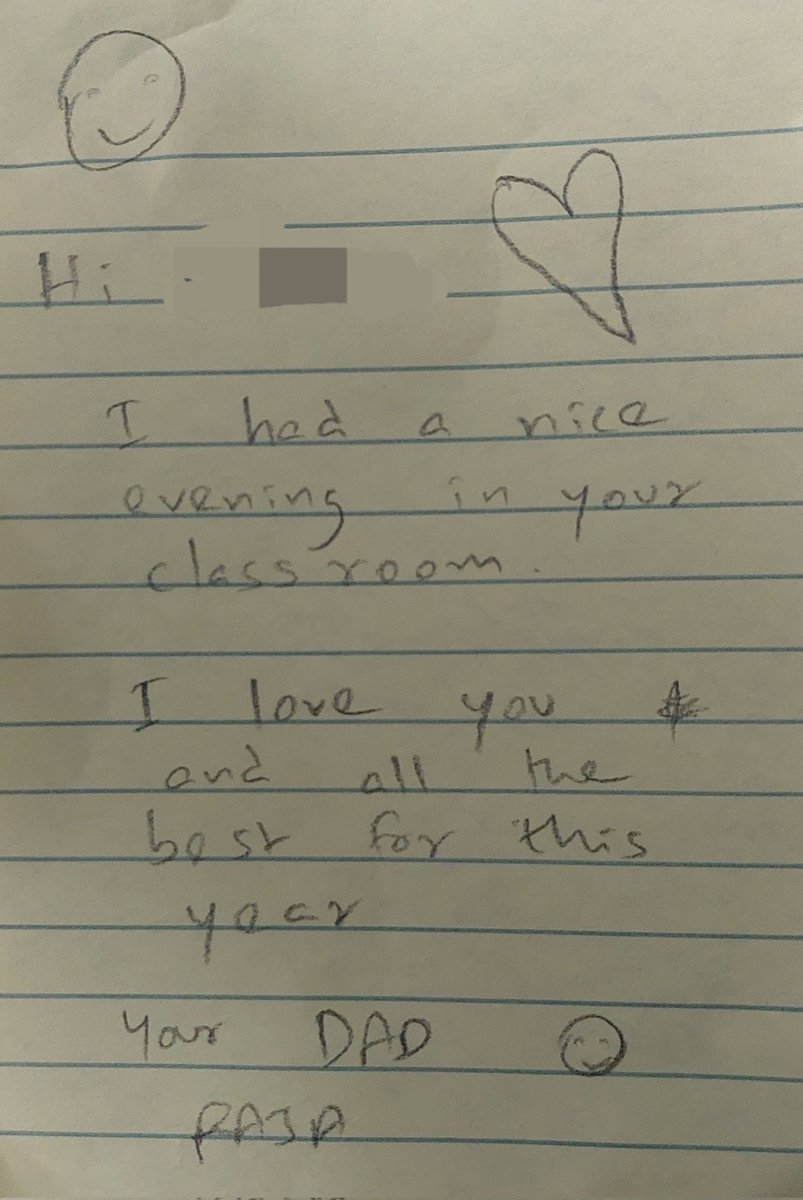 Hi
I had a nice
evening in your
class room.
I love you
and all the
best for this
year
Your DAD
RAJA